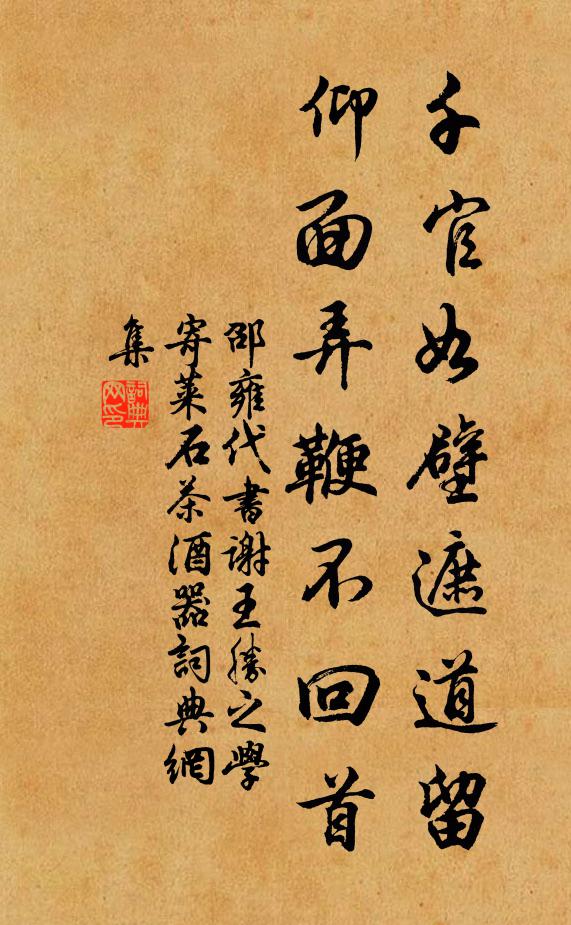 千官如壁遮道留
仰面弄鞭不回首
邵雍代書謝王勝之學
寄萊石茶酒器詞典網
集
詞典
网印